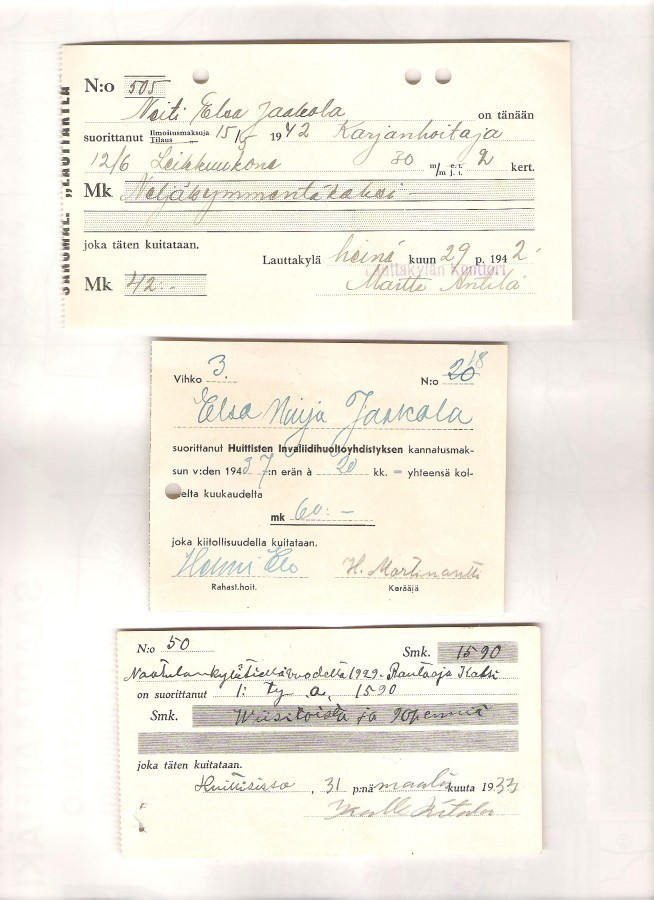 SANOMAL. „LAUTTAKYLÄ
N:o 505
Neiti Elsa Jaakola on tänään
suorittanut Ilmoitusmaksuja Tilaus 15/5 1942 Karjanhoitaja
12/6 Leikkuukone 30 m/m e.t. j.t. 2 kert.
Mk Neljäkymmentäkaksi
joka täten kuitataan.
Lauttakylä heinä kuun 29 p. 1942.
Lauttakylän Konttori
Mk 42:- Martti Anttila
Vihko 3. N:o 20 18
Elsa Maija Jaakola
suorittanut Huittisten Invaliidihuoltoyhdistyksen kannatusmak-
sun v:den 194 :n erän à 20 kk. = yhteensä kol-
melta kuukaudelta
mk 60:-
joka kiitollisuudella kuitataan.
Helmi Elo H. Martinantti
Rahast.hoit. Kerääjä
N:o 50 Smk. 15 90
vuodelta 1929.
on suorittanut 15 90
Smk. Wiisitoista ja 90 penniä
joka täten kuitataan.
Huittisissa, 31 p:nä maalis kuuta 1933
Kalle